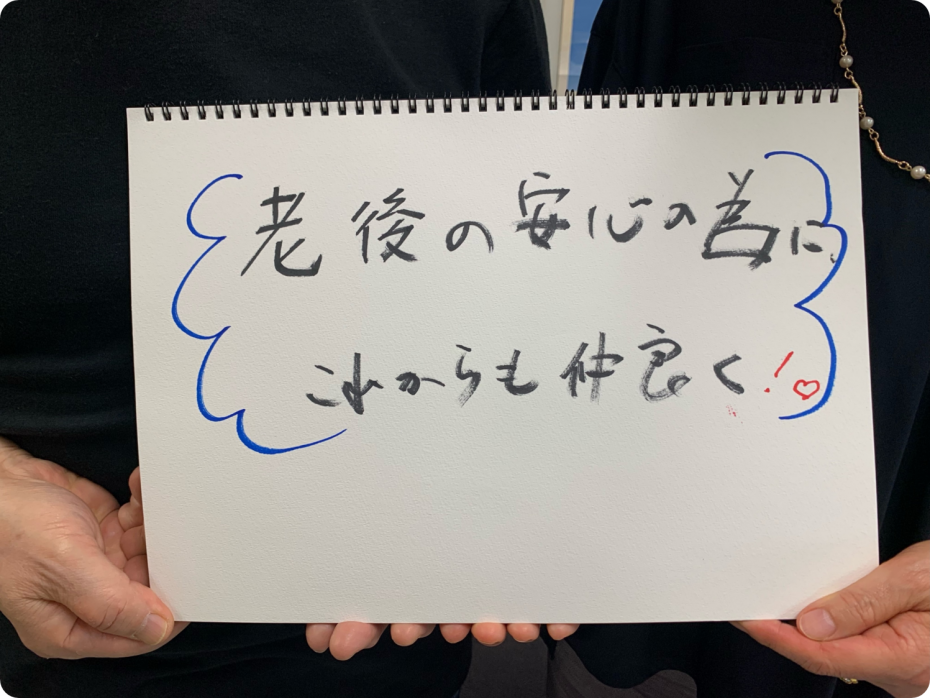 老後の安心の為に
これからも仲良く!♡